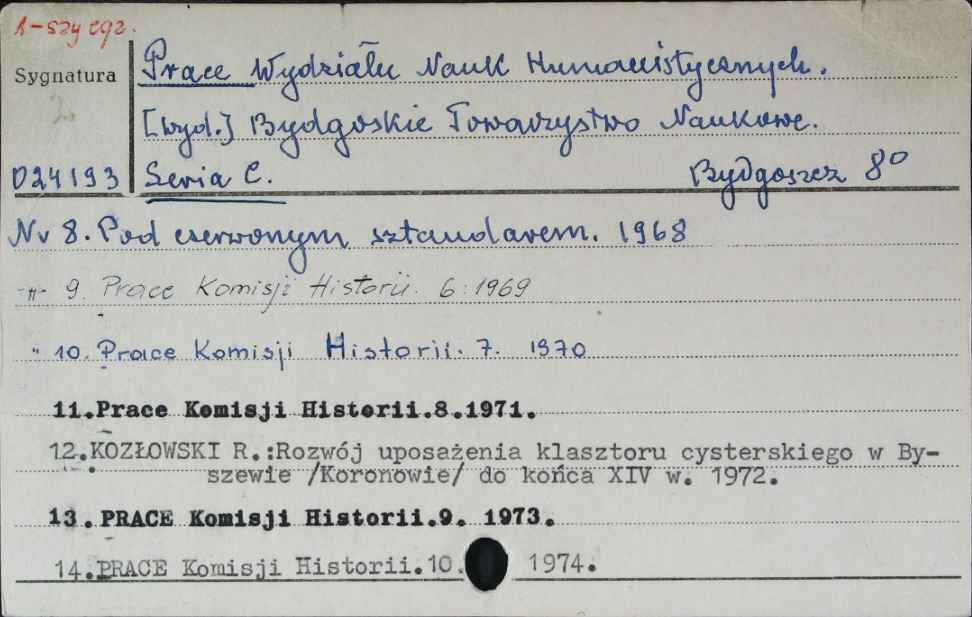 1-szy egz.
Sygnatura
Prace Wydziału Nauk Humanistycznych.
2
[wyd.] Bydgoskie Towarzystwo Naukowe.
D24193
Seria C. Bydgoszcz 8°
Nr 8. Pod czerwonym sztandarem. 1968
-"- 9. Prace Komisji Historii. 6:1969
" 10. Prace Komisji Historii. 7. 1970
11.Prace Komisji Historii.8.1971.
12.KOZŁOWSKI R.:Rozwój uposażenia klasztoru cysterskiego w By-
szewie /Koronowie/ do końca XIV w. 1972.
13.PRACE Komisji Historii.9. 1973.
14.PRACE Komisji Historii.10. 1974.